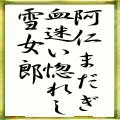 阿仁まだぎ
血迷い惚れし
雪女郎